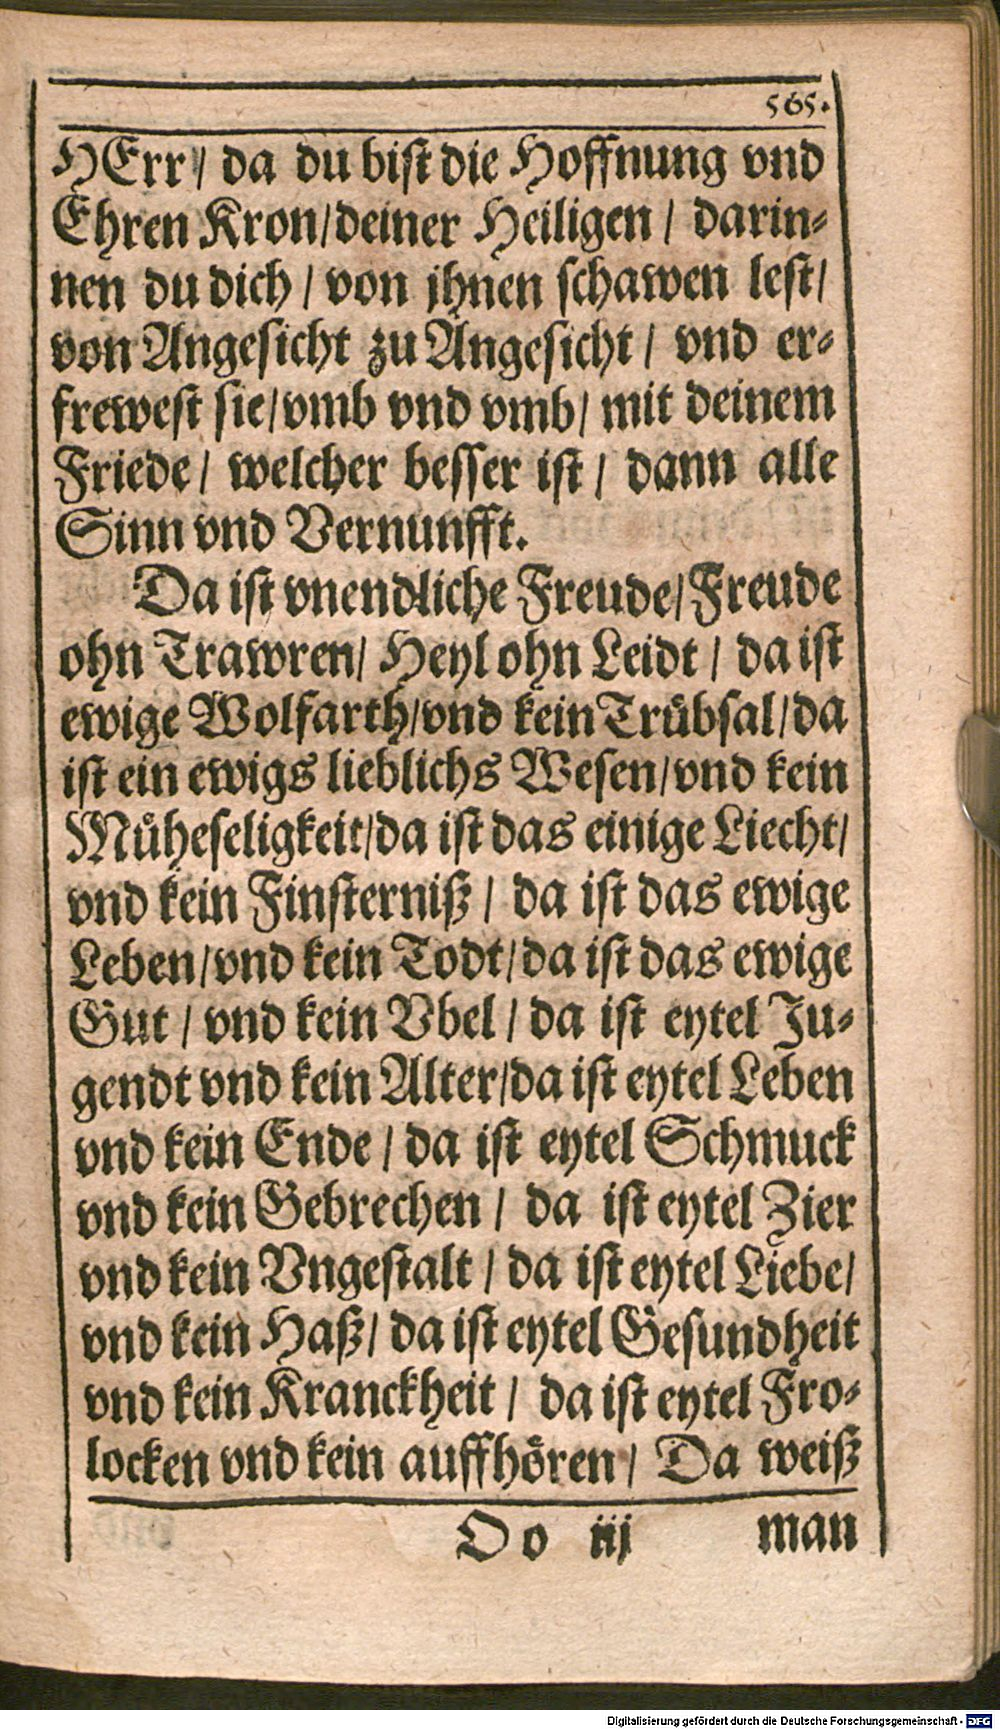 565.
HErr / da du bist die Hoffnung vnd
Ehren Kron / deiner Heiligen / darin-
nen du dich / von jhnen schawen lest /
von Angesicht zu Angesicht / vnd er-
frewest sie / vmb vnd vmb / mit deinem
Friede / welcher besser ist / dann alle
Sinn vnd Vernunfft.
Da ist vnendliche Freude / Freude
ohn Trawren / Heyl ohn Leidt / da ist
ewige Wolfarth / vnd kein Trübsal / da
ist ein ewigs lieblichs Wesen / vnd kein
Müheseligkeit / da ist das einige Liecht /
vnd kein Finsterniß / da ist das ewige
Leben / vnd kein Todt / da ist das ewige
Gut / vnd kein Vbel / da ist eytel Ju-
gendt vnd kein Alter / da ist eytel Leben
vnd kein Ende / da ist eytel Schmuck
vnd kein Gebrechen / da ist eytel Zier
vnd kein Vngestalt / da ist eytel Liebe /
vnd kein Haß / da ist eytel Gesundheit
vnd kein Kranckheit / da ist eytel Fro-
locken vnd kein auffhören / Da weiß
Oo iij man
Digitalisierung gefördert durch die Deutsche Forschungsgemeinschaft - DFG